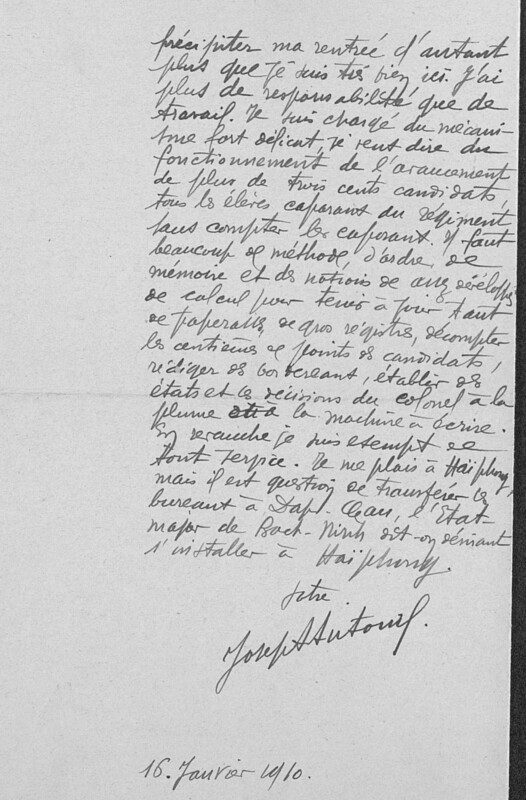 précipiter ma rentrée d'autant
plus que je suis très bien ici. J'ai
plus de responsabilité que de
travail. Je suis chargé du mécani-
sme fort délicat, je veux dire du
fonctionnement de l'avancement
de plus de trois cents candidats,
tous les élèves caporaux du régiment
sans compter les caporaux. Il faut
beaucoup de méthode, d'ordre, de
mémoire et des notions de assez développées
de calcul pour tenir à jour tant
de paperasses, de gros registres, décompter
les centièmes de points des candidats,
rédiger des bordereaux, établir des
états et les décisions du colonel à la
plume et à la machine à écrire.
En revanche je suis exempt de
tout service. Je me plais à Haïphong,
mais il est question de transférer les
bureaux à Dap-Cau, l'État-
major de Bach-Ninh dit-on devant
s'installer à Haïphong.
Votre
Joseph
16. Janvier 1910.